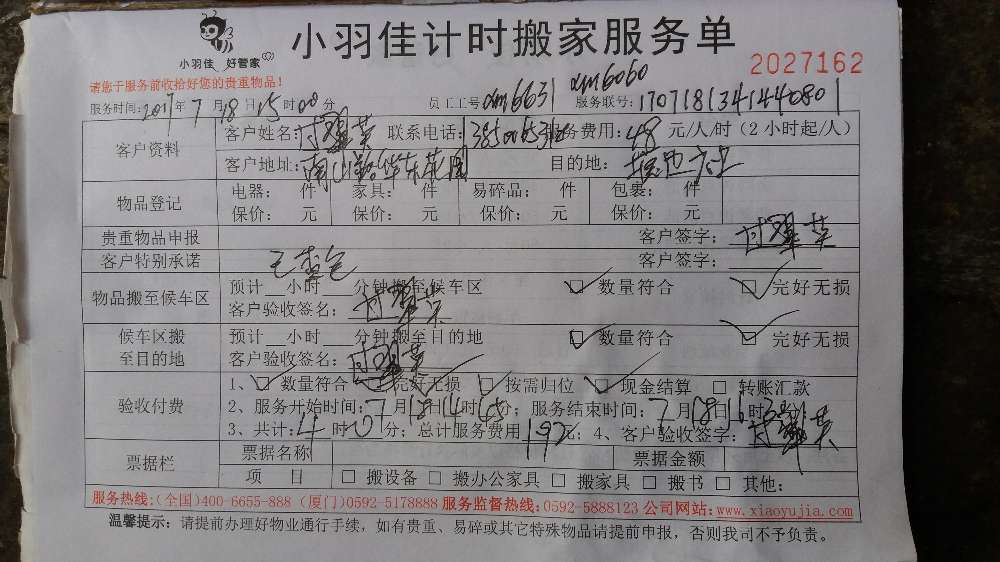 小羽佳 好管家
小羽佳计时搬家服务单
2027162
请您于服务前收拾好您的贵重物品！
服务时间：2017年7月18日15时00分 员工工号xm6631 xm6060 服务联号：1707181341440801
客户资料
客户姓名： 联系电话： 服务费用：48元/人/时（2小时起/人）
客户地址：南山路华东花园 目的地：
物品登记
电器： 件 家具： 件 易碎品： 件 包裹： 件
保价： 元 保价： 元 保价： 元 保价： 元
贵重物品申报 客户签字：
客户特别承诺 客户签字：
物品搬至候车区
预计__小时__分钟搬至候车区 数量符合 完好无损
客户验收签名：
候车区搬至目的地
预计__小时__分钟搬至目的地 数量符合 完好无损
客户验收签名：
验收付费
1、数量符合 完好无损 按需归位 现金结算 转账汇款
2、服务开始时间：7月18日14时 分；服务结束时间：7月18日16时 分；
3、共计：4时01分；总计服务费用192元；4、客户验收签字：
票据栏
票据名称 票据金额
项 目 搬设备 搬办公家具 搬家具 搬书 其他：
服务热线：(全国)400-6655-888 (厦门)0592-5178888 服务监督热线：0592-5888123 公司网站：www.xiaoyujia.com
温馨提示：请提前办理好物业通行手续，如有贵重、易碎或其它特殊物品请提前申报，否则我司不予负责。